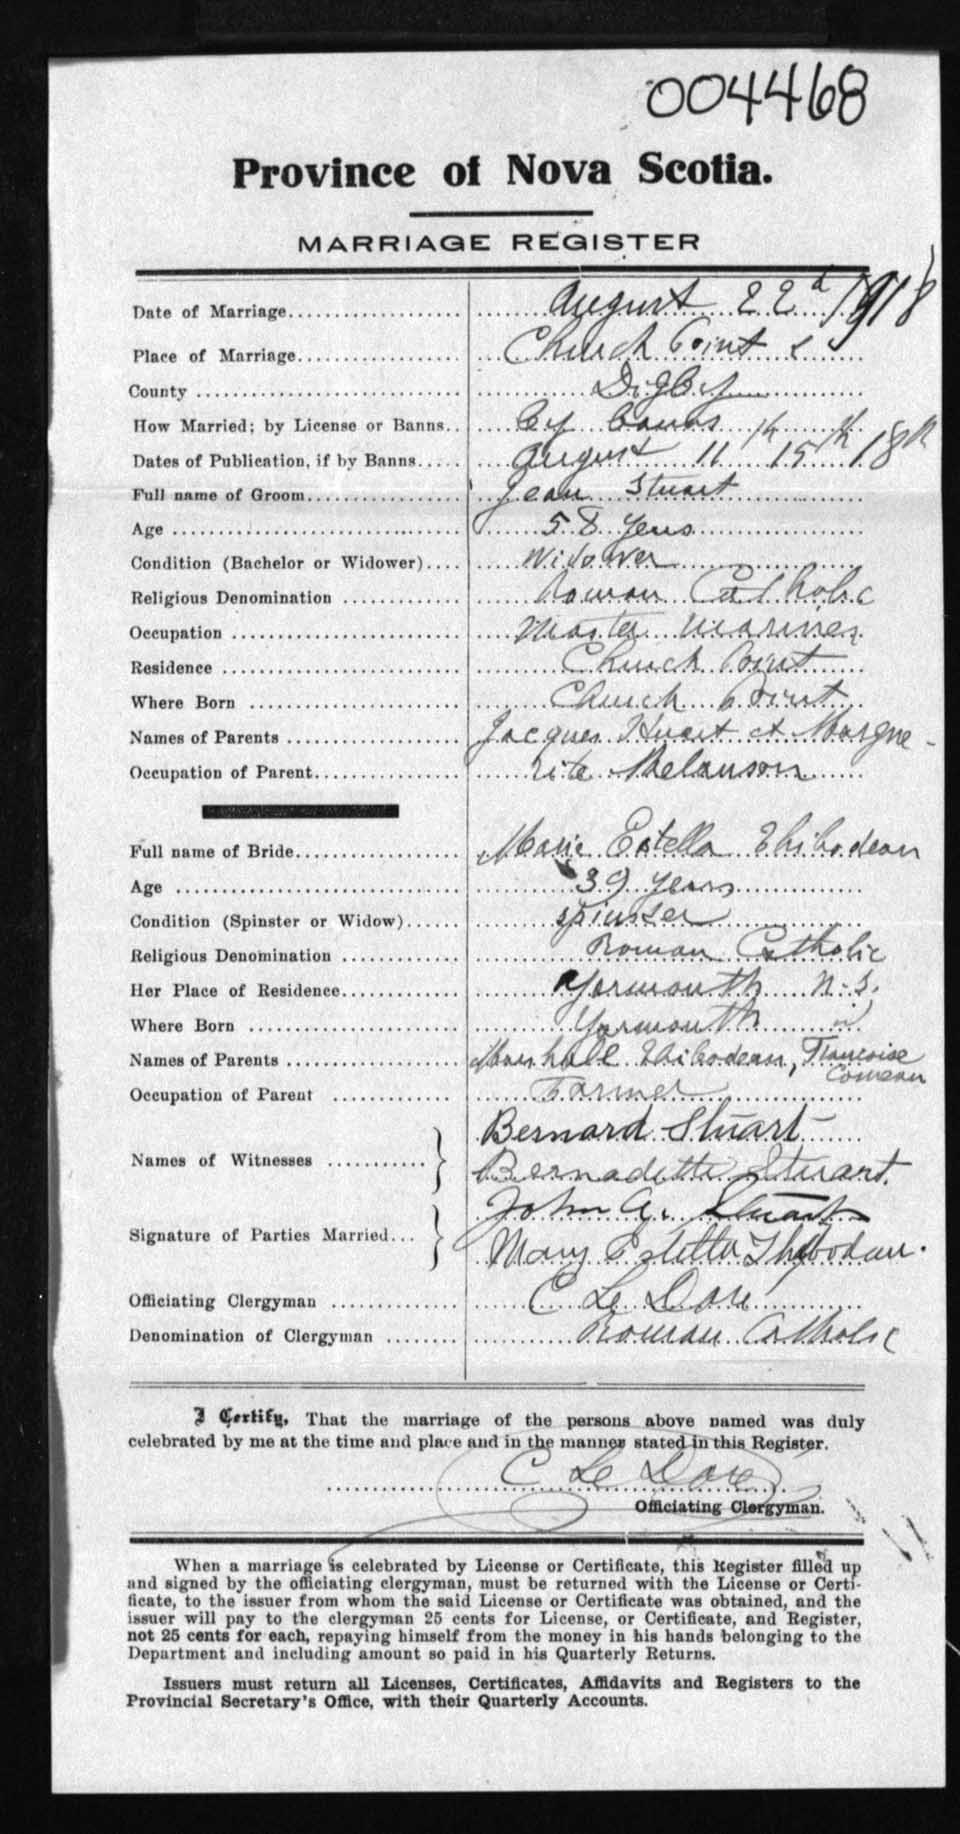 004468
Province of Nova Scotia.
MARRIAGE REGISTER
Date of Marriage August 22d 1918
Place of Marriage Church Point
County Digby
How Married; by License or Banns by Banns
Dates of Publication, if by Banns August 11th 15th 18th
Full name of Groom Jean Stuart
Age 58 years
Condition (Bachelor or Widower) Widower
Religious Denomination Roman Catholic
Occupation Master mariner
Residence Church Point
Where Born Church Point
Names of Parents Jacques Stuart et Margue-
Occupation of Parent rite Melanson
Full name of Bride Marie Estella Thibodeau
Age 39 years
Condition (Spinster or Widow) spinster
Religious Denomination Roman Catholic
Her Place of Residence Yarmouth N.S.
Where Born Yarmouth
Names of Parents Marshall Thibodeau, Francoise Comeau
Occupation of Parent Farmer
Names of Witnesses Bernard Stuart
Bernadette Stuart.
Signature of Parties Married John A. Stuart
Mary Estella Thibodeau.
Officiating Clergyman C Le Doré
Denomination of Clergyman Roman Catholic
I Certify, That the marriage of the persons above named was duly
celebrated by me at the time and place and in the manner stated in this Register.
C Le Doré
Officiating Clergyman.
When a marriage is celebrated by License or Certificate, this Register filled up
and signed by the officiating clergyman, must be returned with the License or Certi-
ficate, to the issuer from whom the said License or Certificate was obtained, and the
issuer will pay to the clergyman 25 cents for License, or Certificate, and Register,
not 25 cents for each, repaying himself from the money in his hands belonging to the
Department and including amount so paid in his Quarterly Returns.
Issuers must return all Licenses, Certificates, Affidavits and Registers to the
Provincial Secretary's Office, with their Quarterly Accounts.